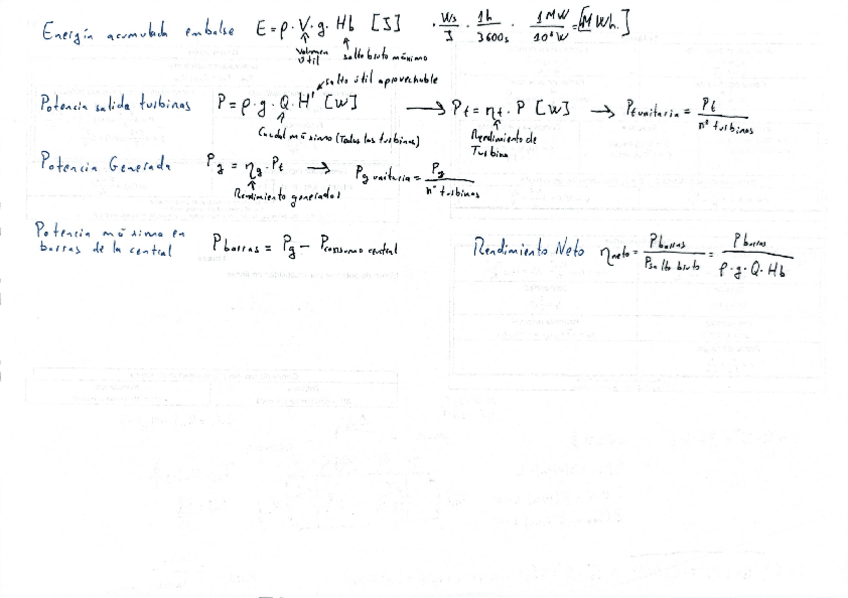 Energía acumulada embalse E = ρ · V · g · Hb [J] · Ws/J · 1h/3600s · 1MW/10⁶W = [MWh]
Volumen útil
salto bruto máximo
salto útil aprovechable
Potencia salida turbinas P = ρ · g · Q · H' [W] → Pt = ηt · P [W] → Pt unitaria = Pt/nº turbinas
Caudal máximo (Todas las turbinas)
Rendimiento de Turbina
Potencia Generada Pg = ηg · Pt → Pg unitaria = Pg/nº turbinas
Rendimiento generador
Potencia máxima en barras de la central Pbarras = Pg − Pconsumo central
Rendimiento Neto ηneto = Pbarras/Psalto bruto = Pbarras/ρ · g · Q · Hb